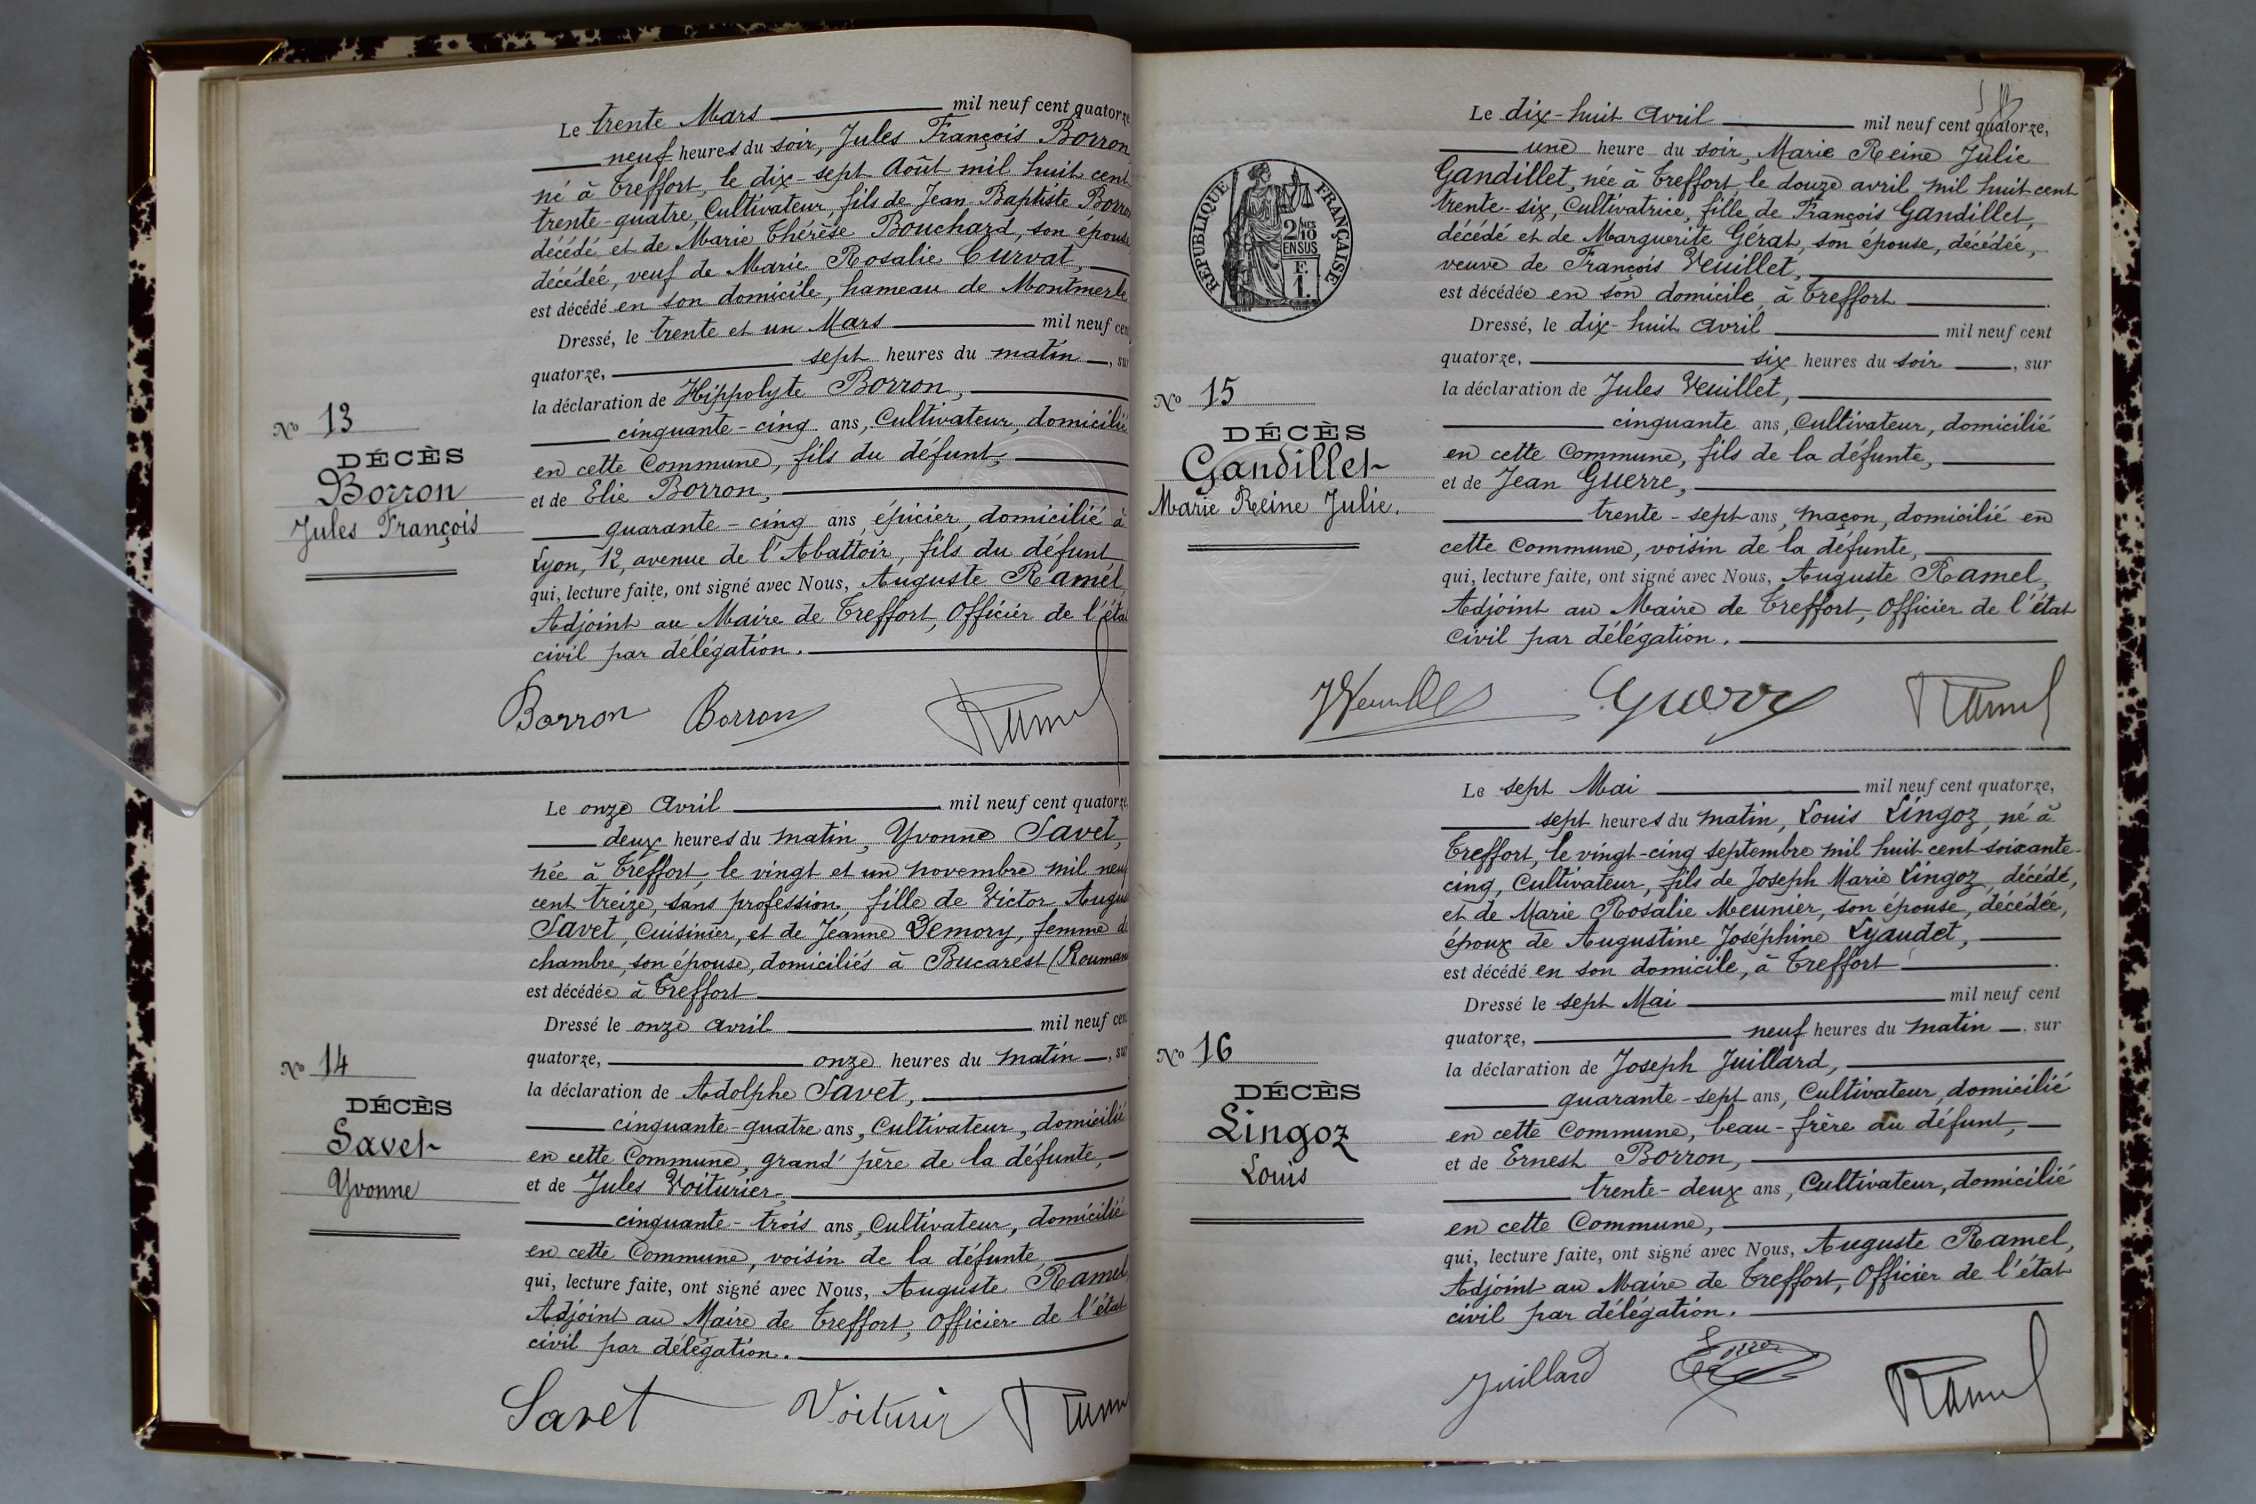 Le trente Mars mil neuf cent quatorze
neuf heures du soir, Jules François Borron
né à Treffort, le dix-sept Août mil huit cent
trente-quatre, Cultivateur, fils de Jean Baptiste Borron
décédé et de Marie Thérèse Bouchard, son épouse,
décédée, veuf de Marie Rosalie Curvat,
est décédé en son domicile, hameau de Montmerle
Dressé, le trente et un Mars mil neuf cent
quatorze, sept heures du matin, sur
la déclaration de Hippolyte Borron,
cinquante-cinq ans, Cultivateur, domicilié
en cette Commune, fils du défunt,
et de Elie Borron,
quarante-cinq ans, épicier, domicilié à
Lyon, 12, avenue de l'Abattoir, fils du défunt
qui, lecture faite, ont signé avec Nous, Auguste Ramel,
Adjoint au Maire de Treffort, Officier de l'état
civil par délégation.
Borron Borron Ramel
No 13
DÉCÈS
Borron
Jules François
Le onze Avril mil neuf cent quatorze,
deux heures du matin, Yvonne Savet,
née à Treffort, le vingt et un novembre mil neuf
cent treize, sans profession, fille de Victor Auguste
Savet, Cuisinier, et de Jeanne Demory, femme de
chambre, son épouse, domiciliés à Bucarest (Roumanie
est décédée à Treffort
Dressé le onze avril mil neuf cent
quatorze, onze heures du matin, sur
la déclaration de Adolphe Savet,
cinquante-quatre ans, Cultivateur, domicilié
en cette Commune, grand'père de la défunte,
et de Jules Voiturier,
cinquante-trois ans, Cultivateur, domicilié
en cette Commune, voisin de la défunte,
qui, lecture faite, ont signé avec Nous, Auguste Ramel,
Adjoint au Maire de Treffort, Officier de l'état
civil par délégation.
Savet Voiturier Ramel
No 14
DÉCÈS
Savet
Yvonne
RÉPUBLIQUE FRANÇAISE
2/10 MES
EN SUS
F.
1.
Le dix-huit Avril mil neuf cent quatorze,
une heure du soir, Marie Reine Julie
Gandillet, née à Treffort le douze avril mil huit cent
trente-six, Cultivatrice, fille de François Gandillet,
décédé et de Marguerite Gérat, son épouse, décédée,
veuve de François Veuillet,
est décédée en son domicile, à Treffort
Dressé, le dix-huit Avril mil neuf cent
quatorze, six heures du soir, sur
la déclaration de Jules Veuillet,
cinquante ans, Cultivateur, domicilié
en cette Commune, fils de la défunte,
et de Jean Guerre,
trente-sept ans, maçon, domicilié en
cette Commune, voisin de la défunte,
qui, lecture faite, ont signé avec Nous, Auguste Ramel,
Adjoint au Maire de Treffort, Officier de l'état
civil par délégation.
Guerre Ramel
No 15
DÉCÈS
Gandillet
Marie Reine Julie.
Le sept Mai mil neuf cent quatorze,
sept heures du matin, Louis Lingoz, né à
Treffort, le vingt-cinq septembre mil huit cent soixante-
cinq, Cultivateur, fils de Joseph Marie Lingoz, décédé,
et de Marie Rosalie Meunier, son épouse, décédée,
époux de Augustine Joséphine Lyaudet,
est décédé en son domicile, à Treffort
Dressé le sept Mai mil neuf cent
quatorze, neuf heures du matin, sur
la déclaration de Joseph Juillard,
quarante-sept ans, Cultivateur, domicilié
en cette Commune, beau-frère du défunt,
et de Ernest Borron,
trente-deux ans, Cultivateur, domicilié
en cette Commune,
qui, lecture faite, ont signé avec Nous, Auguste Ramel,
Adjoint au Maire de Treffort, Officier de l'état
civil par délégation.
Juillard Ramel
No 16
DÉCÈS
Lingoz
Louis